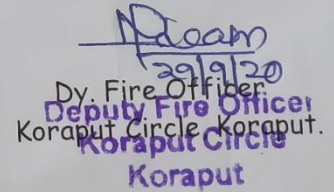 29/9/20
Dy. Fire Officer
Deputy Fire Officer
Koraput Circle, Koraput.
Koraput Circle
Koraput